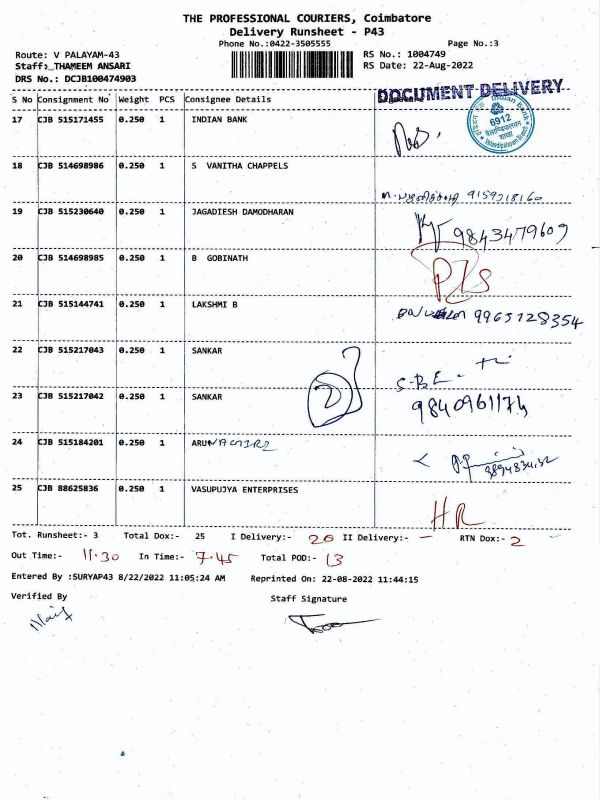 THE PROFESSIONAL COURIERS, Coimbatore
Delivery Runsheet - P43
Phone No.:0422-3505555
Page No.:3
Route: V PALAYAM-43
RS No.: 1004749
Staff: THAMEEM ANSARI
RS Date: 22-Aug-2022
DRS No.: DCJB100474903
DOCUMENT DELIVERY
S No Consignment No Weight PCS Consignee Details
Indian Bank
6912
17 CJB 515171455 0.250 1 INDIAN BANK
18 CJB 514698986 0.250 1 S VANITHA CHAPPELS
9159218160
19 CJB 515230640 0.250 1 JAGADIESH DAMODHARAN
9843479609
20 CJB 514698985 0.250 1 B GOBINATH
21 CJB 515144741 0.250 1 LAKSHMI B
9965128354
22 CJB 515217043 0.250 1 SANKAR
23 CJB 515217042 0.250 1 SANKAR
2
9840961174
24 CJB 515184201 0.250 1 ARUNAGIRI
25 CJB 88625836 0.250 1 VASUPUJYA ENTERPRISES
HR
Tot. Runsheet:- 3 Total Dox:- 25 I Delivery:- 20 II Delivery:- - RTN Dox:- 2
Out Time:- 11.30 In Time:- 7.45 Total POD:- 13
Entered By :SURYAP43 8/22/2022 11:05:24 AM Reprinted On: 22-08-2022 11:44:15
Verified By
Staff Signature